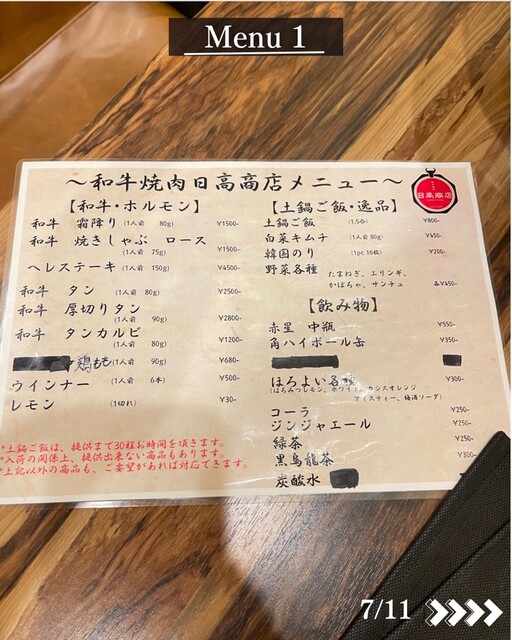 Menu 1
～和牛焼肉日高商店メニュー～
日高商店
【和牛・ホルモン】
和牛 霜降り (1人前 80g) ¥1500-
和牛 焼きしゃぶ ロース
(1人前 75g) ¥1500-
ヘレステーキ (1人前 150g) ¥4500-
和牛 タン (1人前 80g) ¥2500-
和牛 厚切りタン
(1人前 90g) ¥2800-
和牛 タンカルビ
(1人前 80g) ¥1200-
鶏もも (1人前 90g) ¥680-
ウインナー (1人前 6本) ¥500-
レモン (1切れ) ¥30-
*土鍋ご飯は、提供まで30程お時間を頂きます。
*入荷の関係上、提供出来ない商品もあります。
*上記以外の商品も、ご要望があれば対応できます。
【土鍋ご飯・逸品】
土鍋ご飯 (1.5合) ¥800-
白菜キムチ (1人前 80g) ¥450-
韓国のり (1pc 10枚) ¥200-
野菜各種 たまねぎ、エリンギ、
かぼちゃ、サンチュ 各¥450-
【飲み物】
赤星 中瓶 ¥550-
角ハイボール缶 ¥350-
ほろよい各種 ¥300-
(はちみつレモン、ホワイト、カシスオレンジ
アイスティー、梅酒ソーダ)
コーラ ¥250-
ジンジャエール ¥250-
緑茶 ¥250-
黒烏龍茶 ¥300-
炭酸水
7/11